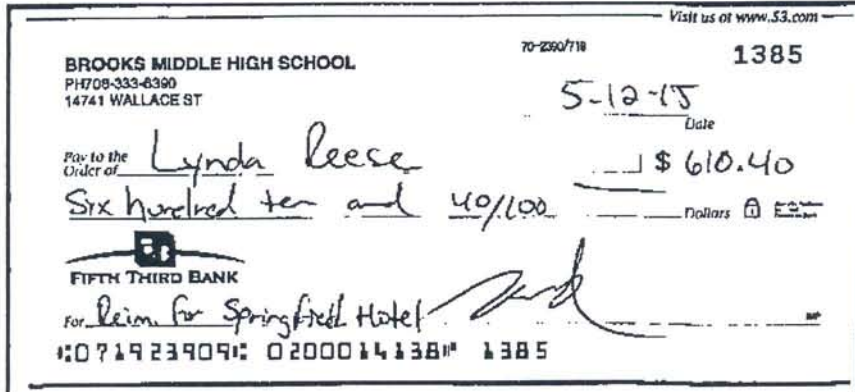 Visit us at www.53.com
70-2390/719
1385
BROOKS MIDDLE HIGH SCHOOL
PH708-333-6390
14741 WALLACE ST
5-12-15
Date
Pay to the Order of Lynda Reese $ 610.40
Six hundred ten and 40/100 Dollars
FIFTH THIRD BANK
For Reim. for Springfield Hotel
⑆071923909⑆ 0200014138⑈ 1385